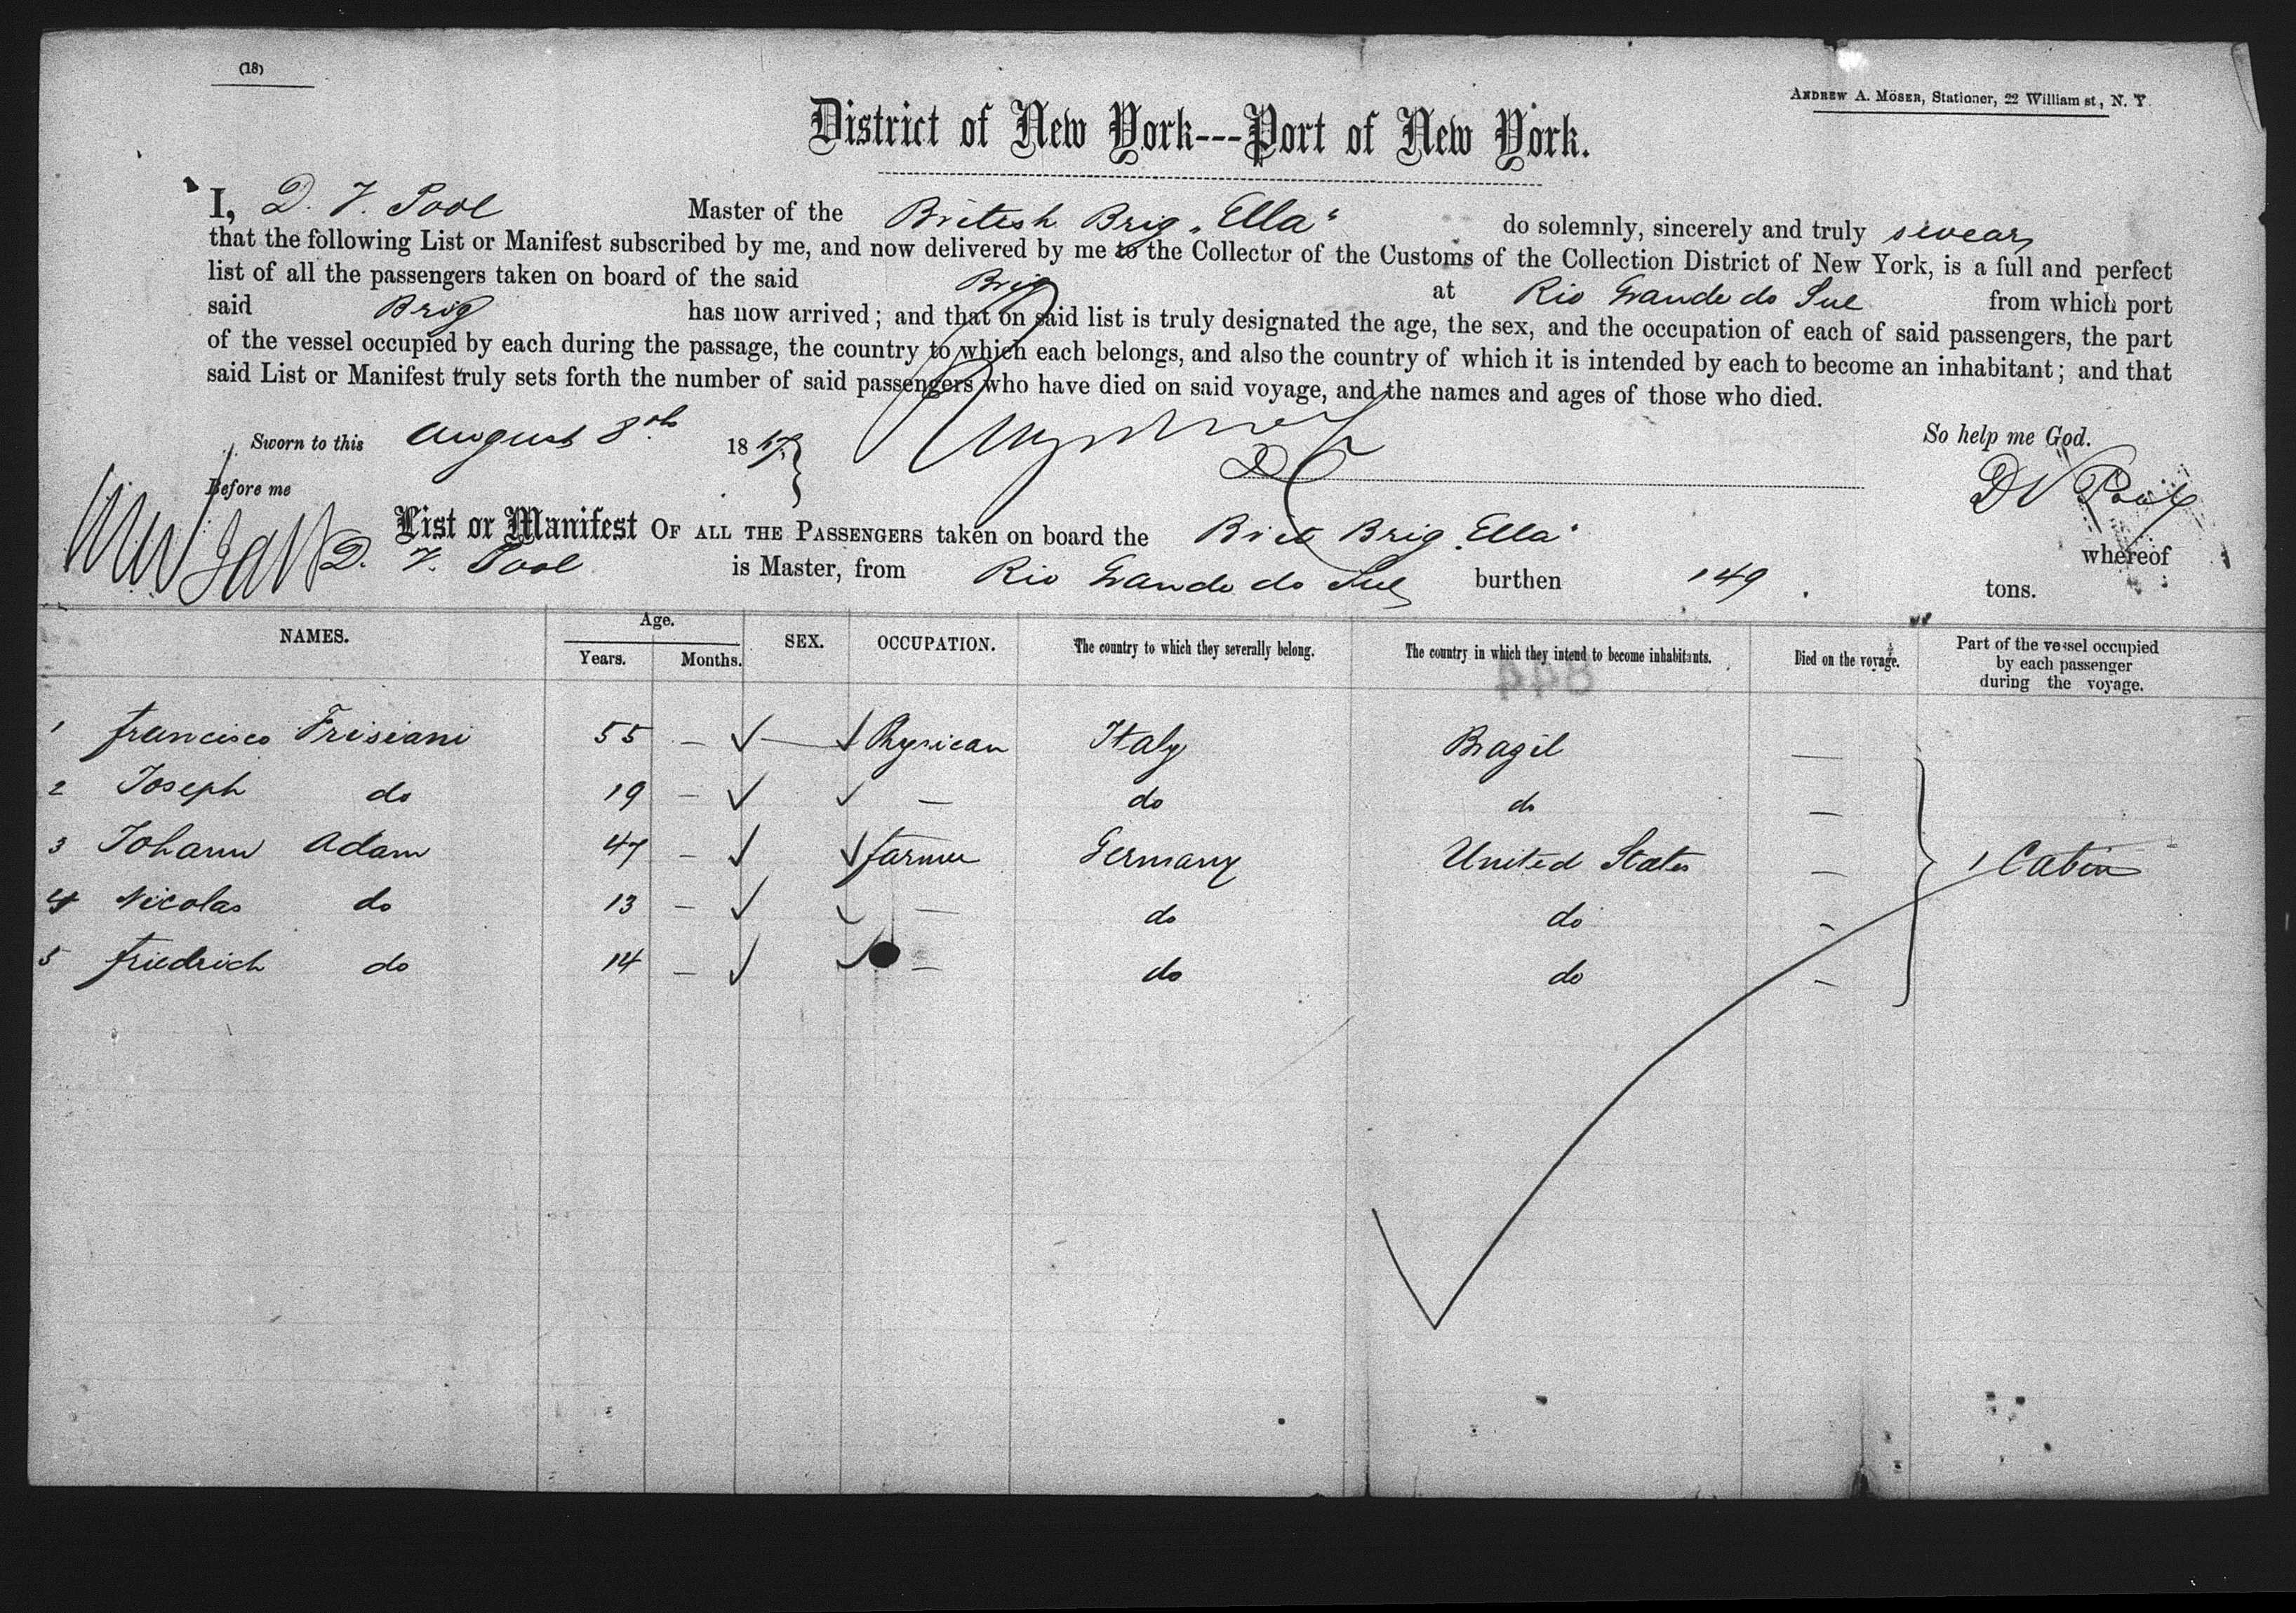 (18)
ANDREW A. MÖSER, Stationer, 22 William st, N. Y.
District of New York---Port of New York.
I, D. V. Pool Master of the British Brig „Ella“ do solemnly, sincerely and truly swear,
that the following List or Manifest subscribed by me, and now delivered by me to the Collector of the Customs of the Collection District of New York, is a full and perfect
list of all the passengers taken on board of the said Brig at Rio Grande do Sul from which port
said Brig has now arrived; and that on said list is truly designated the age, the sex, and the occupation of each of said passengers, the part
of the vessel occupied by each during the passage, the country to which each belongs, and also the country of which it is intended by each to become an inhabitant; and that
said List or Manifest truly sets forth the number of said passengers who have died on said voyage, and the names and ages of those who died.
Sworn to this August 8th 18
So help me God.
Before me
D V Pool
List or Manifest OF ALL THE PASSENGERS taken on board the Brit Brig „Ella“ whereof
D. V. Pool is Master, from Rio Grande do Sul burthen 149 tons.
NAMES. Age. Years. Months. SEX. OCCUPATION. The country to which they severally belong. The country in which they intend to become inhabitants. Died on the voyage. Part of the vessel occupied by each passenger during the voyage.
844
1 Francisco Frisiani 55 — Physican Italy Brazil —
2 Joseph do 19 — — do do —
3 Johann Adam 47 — Farmer Germany United States — Cabin
4 Nicolas do 13 — — do do —
5 Friedrich do 14 — — do do —